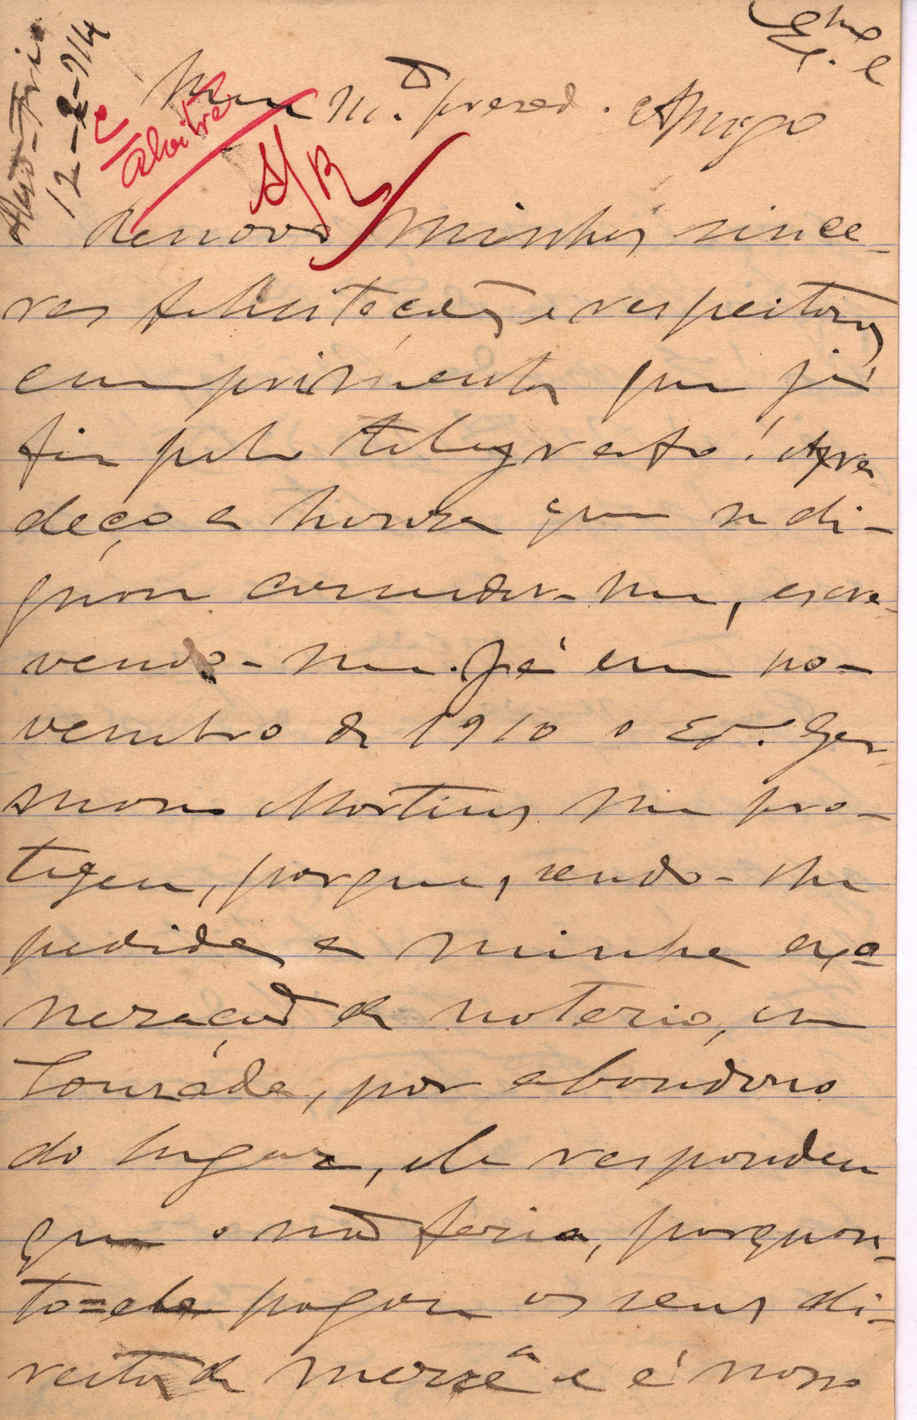 Exmo
12-2-914
Alvitre
S/R
Meu M.to prezad. Amigo
Renovo minhas since-
ras felicitações e respeitosos
cumprimentos que já
fiz pelo telegrafo! Agra
deço a honra que se di-
gnou conceder-me, escre-
vendo-me. Já em no-
vembro de 1910 o Ex.mo Ger-
mano Martins me pro-
tegeu, porque, sendo-lhe
pedida a minha exo-
neração de notario, em
Louzáda, por abandono
do lugar, ele respondeu
que o não faria, porquan-
to=ele pagou os seus di-
reitos de mercê e é nosso